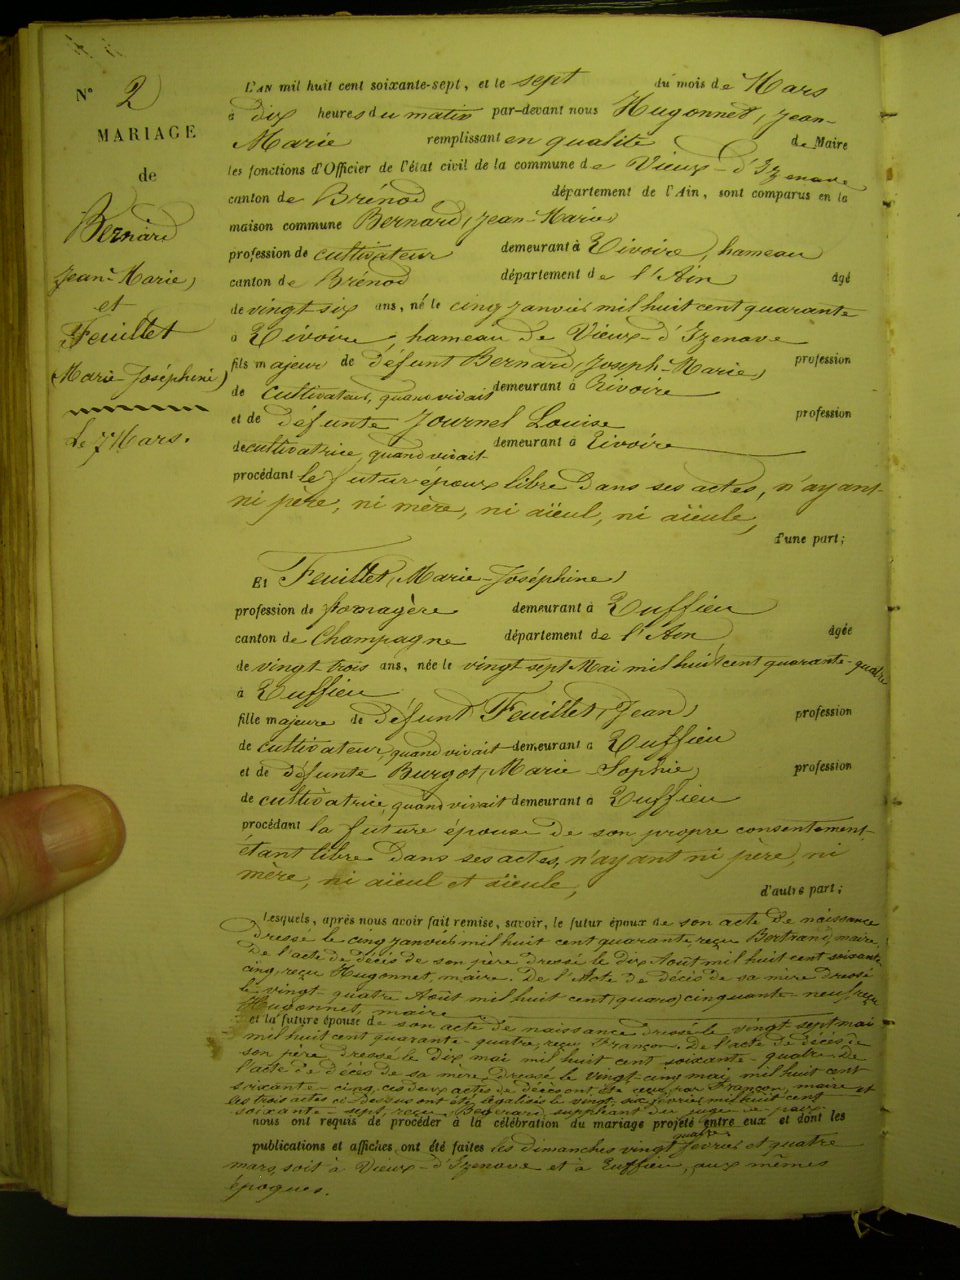 N° 2
MARIAGE
de
Bernard
Jean-Marie,
et
Feuillet
(Marie-Joséphine)
Le 7 Mars.
L'AN mil huit cent soixante-sept, et le sept du mois de Mars
à dix heures du matin par-devant nous Hugonnet, Jean-
Marie remplissant en qualité de Maire
les fonctions d'Officier de l'état civil de la commune de Vieux-d'Izenave
canton de Brénod département de l'Ain, sont comparus en la
maison commune Bernard, Jean-Marie,
profession de cultivateur demeurant à Rivoire, hameau
canton de Brénod département de l'Ain âgé
de vingt six ans, né le cinq janvier mil huit cent quarante
à Rivoire, hameau de Vieux-d'Izenave
fils majeur de défunt Bernard, Joseph-Marie, profession
de cultivateur, quand vivait demeurant à Rivoire
et de défunte Journel Louise profession
de cultivatrice, quand vivait demeurant à Rivoire
procédant le futur époux libre dans ses actes, n'ayant
ni père, ni mère, ni aïeul, ni aïeule,
d'une part;
Et Feuillet, Marie-Joséphine,
profession de fromagère demeurant à Ruffieu
canton de Champagne département de l'Ain âgée
de vingt trois ans, née le vingt sept Mai mil huit cent quarante-quatre
à Ruffieu
fille majeure de défunt Feuillet, Jean, profession
de cultivateur, quand vivait demeurant à Ruffieu
et de défunte Burgot, Marie Sophie, profession
de cultivatrice, quand vivait demeurant à Ruffieu
procédant la future épouse de son propre consentement
étant libre dans ses actes, n'ayant ni père, ni
mère, ni aïeul et aïeule, d'autre part;
Lesquels, après nous avoir fait remise, savoir, le futur époux de son acte de naissance
dressé le cinq janvier mil huit cent quarante, reçu Bertrand, maire,
De l'acte de décès de son père dressé le dix Août mil huit cent soixante
cinq, reçu Hugonnet, maire. De l'Acte de décès de sa mère dressé
le vingt-quatre Août mil huit cent (quara) cinquante-neuf, reçu
Hugonnet, maire
et la future épouse de son acte de naissance dressé le vingt sept mai
mil huit cent quarante-quatre, reçu Françon. De l'acte de décès de
son père dressé le dix mai mil huit cent soixante-quatre. De
l'acte de décès de sa mère dressé le vingt-cinq mai mil huit cent
soixante-cinq, ces deux actes de décès ont été reçus par Françon, maire et
les trois actes ci-dessus ont été légalisés le vingt-six février mil huit cent
soixante-sept, reçu suppléant du juge de paix
nous ont requis de procéder à la célébration du mariage projeté entre eux et dont les
publications et affiches ont été faites les dimanches vingt quatre février et quatre
mars, soit à Vieux-d'Izenave et à Ruffieu, aux mêmes
époques.